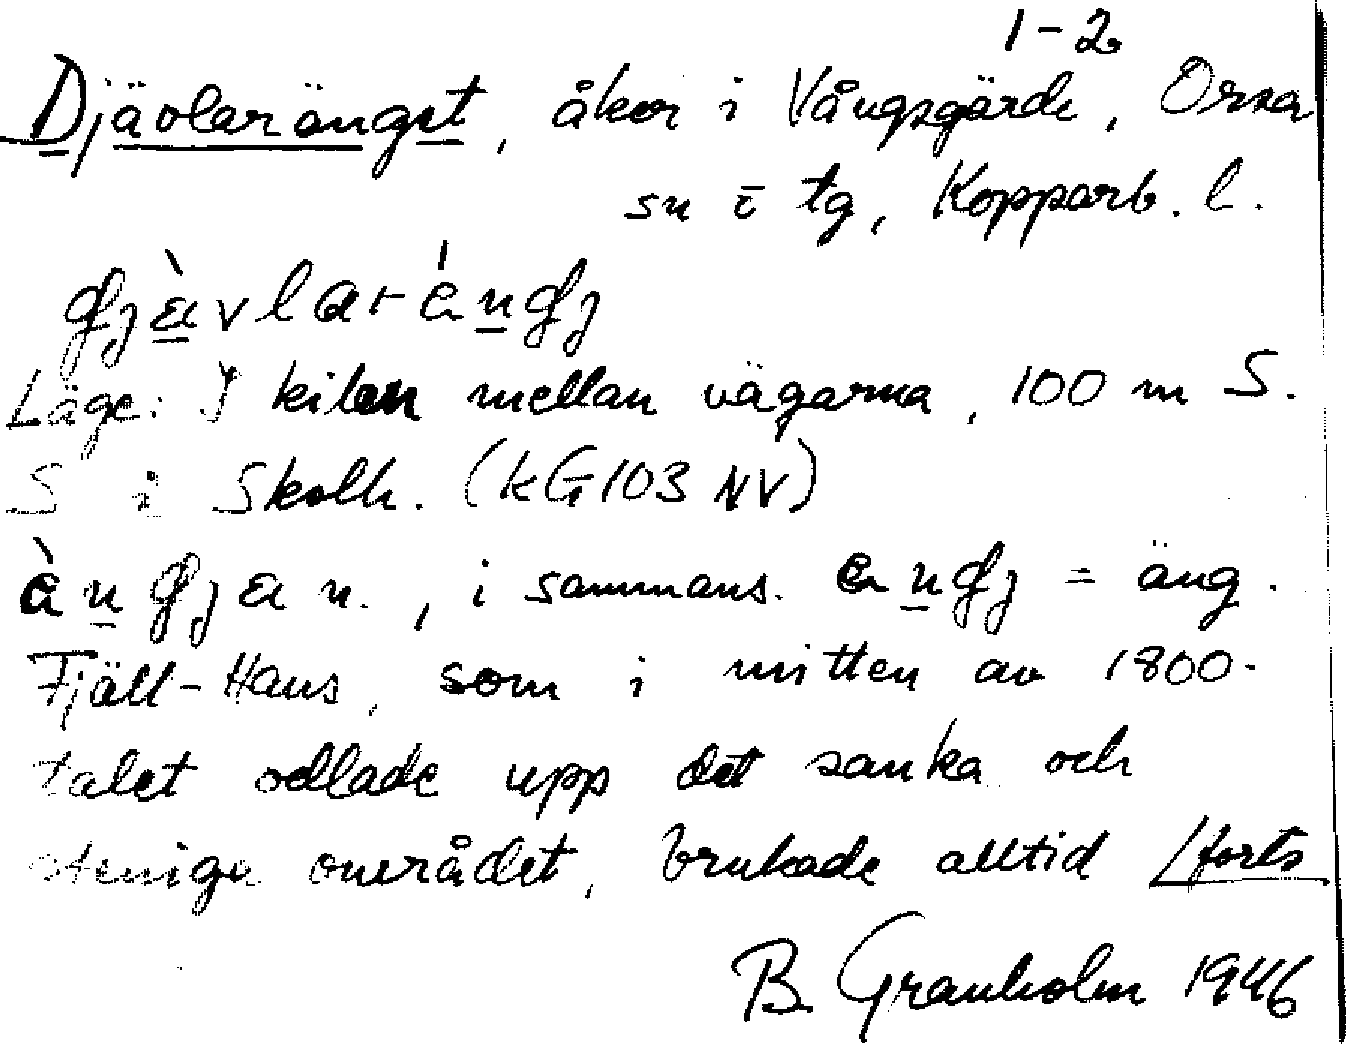 1-2
Djävlaränget, åker i Vångsgärde, Orsa
sn i tg, Kopparb. l.
Läge: I kilen mellan vägarna, 100 m S.
S i Skolh. (kG103 NV)
, i sammans. = äng.
Fjäll-Hans, som i mitten av 1800-
talet odlade upp det sanka och
steniga området, brukade alltid /forts
B. Granholm 1946